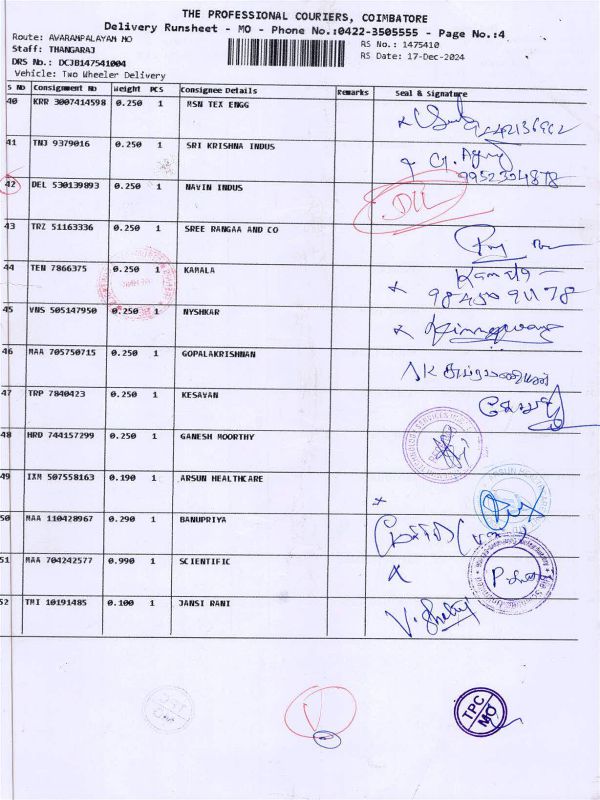 THE PROFESSIONAL COURIERS, COIMBATORE
Delivery Runsheet - MO - Phone No.:0422-3505555 - Page No.:4
Route: AVARAMPALAYAM MO
RS No.: 1475410
Staff: THANGARAJ
RS Date: 17-Dec-2024
DRS No.: DCJB147541004
Vehicle: Two Wheeler Delivery
S No Consignment No Weight PCS Consignee Details Remarks Seal & Signature
40 KRR 3007414598 0.250 1 MSN TEX ENGG
41 TNJ 9379016 0.250 1 SRI KRISHNA INDUS
9952304878
42 DEL 530139893 0.250 1 NAVIN INDUS
43 TRZ 51163336 0.250 1 SREE RANGAA AND CO
44 TEN 7866375 0.250 1 KAMALA Kamala
45 VNS 505147950 0.250 1 NYSHKAR
46 MAA 705750715 0.250 1 GOPALAKRISHNAN
47 TRP 7840423 0.250 1 KESAVAN
48 HRD 744157299 0.250 1 GANESH MOORTHY
49 IXM 507558163 0.190 1 ARSUN HEALTHCARE
50 MAA 110428967 0.290 1 BANUPRIYA
51 MAA 704242577 0.990 1 SCIENTIFIC
52 TMI 10191485 0.100 1 JANSI RANI
TPC
MO